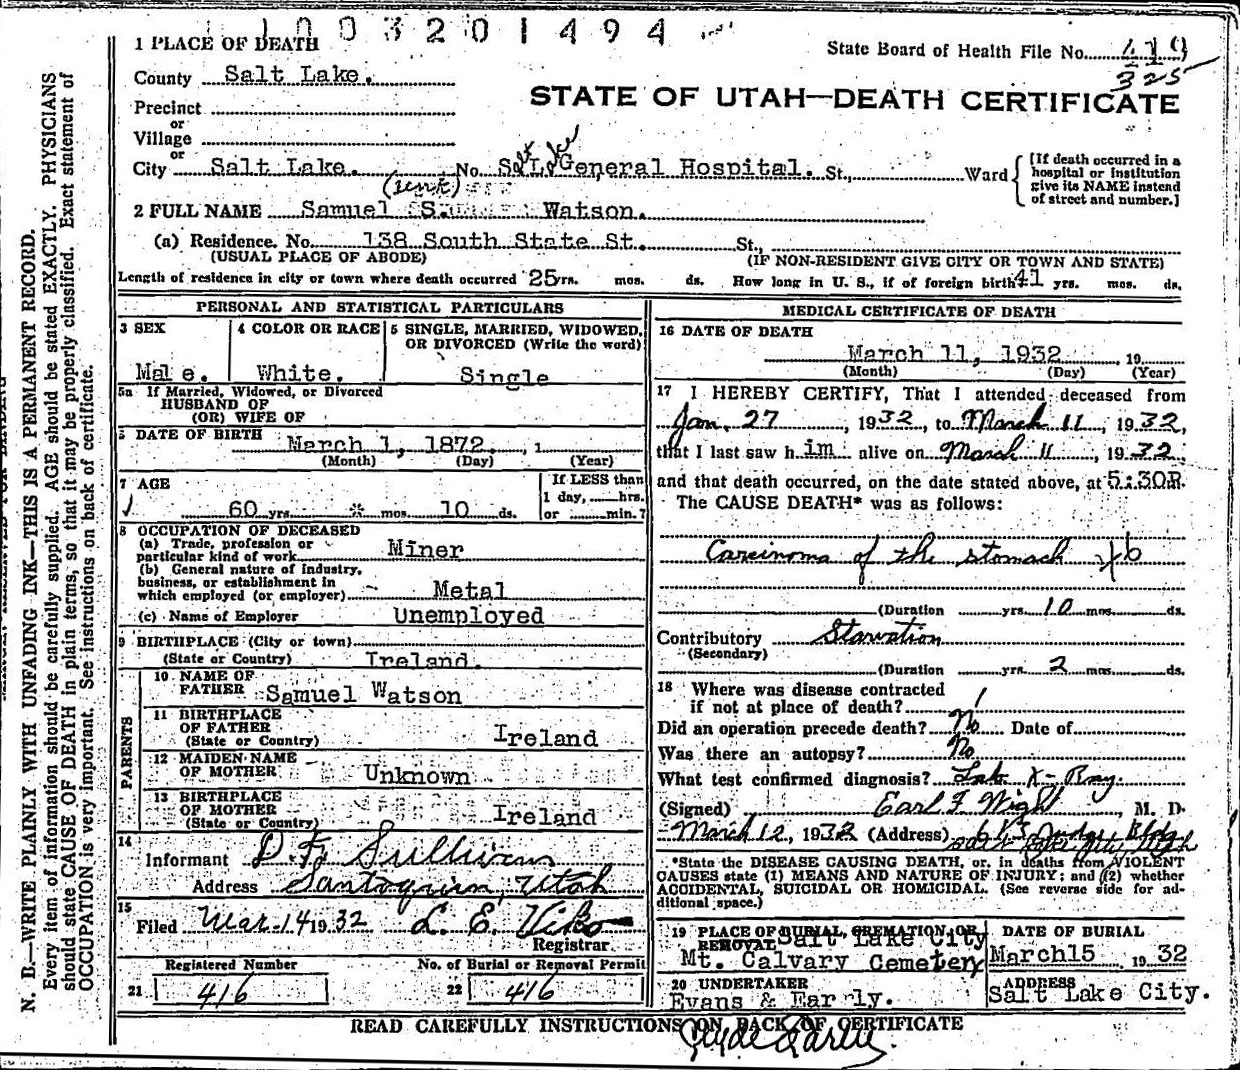 1003201494
1 PLACE OF DEATH
State Board of Health File No. 419
325
County Salt Lake.
STATE OF UTAH—DEATH CERTIFICATE
Precinct
or
Village
or
City Salt Lake. No. Salt Lake General Hospital. St., Ward
[If death occurred in a
hospital or institution
give its NAME instead
of street and number.]
2 FULL NAME Samuel S. Watson.
(a) Residence. No. 138 South State St. St.,
(USUAL PLACE OF ABODE) (IF NON-RESIDENT GIVE CITY OR TOWN AND STATE)
Length of residence in city or town where death occurred 25 yrs. mos. ds. How long in U. S., if of foreign birth 41 yrs. mos. ds.
PERSONAL AND STATISTICAL PARTICULARS
3 SEX
Male.
4 COLOR OR RACE
White.
5 SINGLE, MARRIED, WIDOWED,
OR DIVORCED (Write the word)
Single
5a If Married, Widowed, or Divorced
HUSBAND OF
(OR) WIFE OF
DATE OF BIRTH March 1, 1872, 1
(Month) (Day) (Year)
7 AGE
60 yrs. * mos. 10 ds.
If LESS than
1 day, hrs.
or min.?
8 OCCUPATION OF DECEASED
(a) Trade, profession or
particular kind of work Miner
(b) General nature of industry,
business, or establishment in
which employed (or employer) Metal
(c) Name of Employer Unemployed
9 BIRTHPLACE (City or town)
(State or Country) Ireland.
PARENTS
10 NAME OF
FATHER Samuel Watson
11 BIRTHPLACE
OF FATHER
(State or Country) Ireland
12 MAIDEN NAME
OF MOTHER Unknown
13 BIRTHPLACE
OF MOTHER
(State or Country) Ireland
14
Informant D. F. Sullivan
Address Santaquin, Utah
15
Filed Mar. 14 1932 L. E. Viko
Registrar.
Registered Number No. of Burial or Removal Permit
21 416 22 416
MEDICAL CERTIFICATE OF DEATH
16 DATE OF DEATH
March 11, 1932 19
(Month) (Day) (Year)
17 I HEREBY CERTIFY, That I attended deceased from
Jan. 27, 1932, to March 11, 1932,
that I last saw h im alive on March 11, 1932,
and that death occurred, on the date stated above, at 5:30P.
The CAUSE DEATH* was as follows:
Carcinoma of the stomach
(Duration yrs. 10 mos. ds.
Contributory Starvation
(Secondary)
(Duration yrs. 2 mos. ds.
18 Where was disease contracted
if not at place of death?
Did an operation precede death? No Date of
Was there an autopsy? No
What test confirmed diagnosis? Lab X-Ray.
(Signed) Earl F. Wight, M. D.
March 12, 1932 (Address) Judge Bldg
*State the DISEASE CAUSING DEATH, or, in deaths from VIOLENT
CAUSES state (1) MEANS AND NATURE OF INJURY; and (2) whether
ACCIDENTAL, SUICIDAL OR HOMICIDAL. (See reverse side for ad-
ditional space.)
19 PLACE OF BURIAL, CREMATION, OR
REMOVAL Salt Lake City
Mt. Calvary Cemetery
DATE OF BURIAL
March 15 19 32
20 UNDERTAKER
Evans & Early.
ADDRESS
Salt Lake City.
READ CAREFULLY INSTRUCTIONS ON BACK OF CERTIFICATE
Clyde Early
N. B.—WRITE PLAINLY WITH UNFADING INK—THIS IS A PERMANENT RECORD.
Every item of information should be carefully supplied. AGE should be stated EXACTLY. PHYSICIANS
should state CAUSE OF DEATH in plain terms, so that it may be properly classified. Exact statement of
OCCUPATION is very important. See instructions on back of certificate.